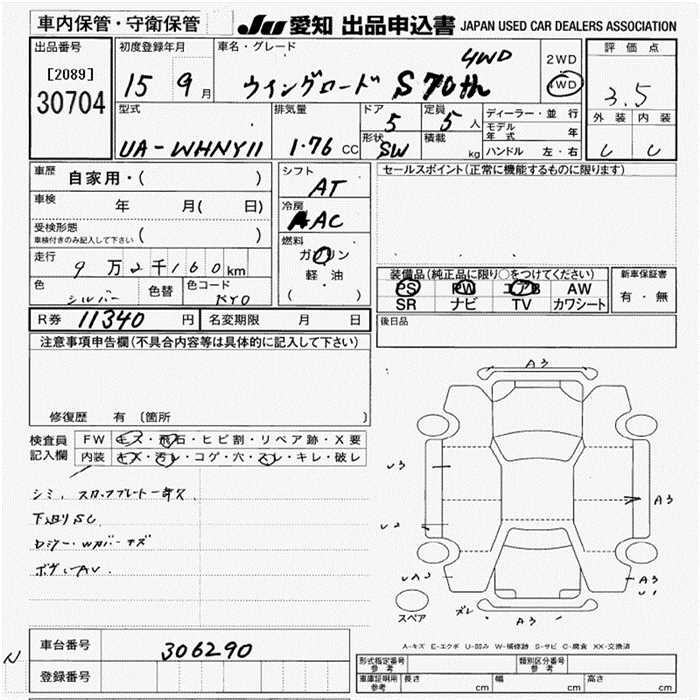 車内保管・守衛保管 JU 愛知 出品申込書 JAPAN USED CAR DEALERS ASSOCIATION
出品番号 初度登録年月 車名・グレード 4WD 2WD 評価点
[2089] 15 9月 ウイングロード S 70th 4WD 3.5
30704
型式 排気量 ドア 5 定員 5人 ディーラー・並行 外装 内装
UA-WHNY11 1.76 CC 形状 SW 積載 kg モデル年式 年 C C
ハンドル 左・右
車歴 自家用・( ) シフト AT セールスポイント(正常に機能するものに限ります)
車検 年 月( 日) 冷房 AAC
受検形態
車検付きのみ記入して下さい ( ) 燃料 ガソリン
走行 9万2千160km 軽・油
装備品(純正品に限り○をつけてください) 新車保証書
色 シルバー 色替 色コード KY0 ( ) PS PW エアB AW 有・無
SR ナビ TV カワシート
R券 11340円 名変期限 月 日 後日品
注意事項申告欄(不具合内容等は具体的に記入して下さい)
修復歴 有 〔箇所 〕
検査員記入欄 FW キズ・飛石・ヒビ割・リペア跡・X要
内装 キズ・汚レ・コゲ・穴・スレ・キレ・破レ
シミ、
下廻りSC
A3
U3
A3
A3
U1
A3
スペア
A-キズ E-エクボ U-凹み W-補修跡 S-サビ C-腐食 XX-交換済
車台番号 306290
登録番号
形式指定番号 参考 類別区分番号 参考
車庫証明用 参考 長さ cm 幅 cm 高さ cm